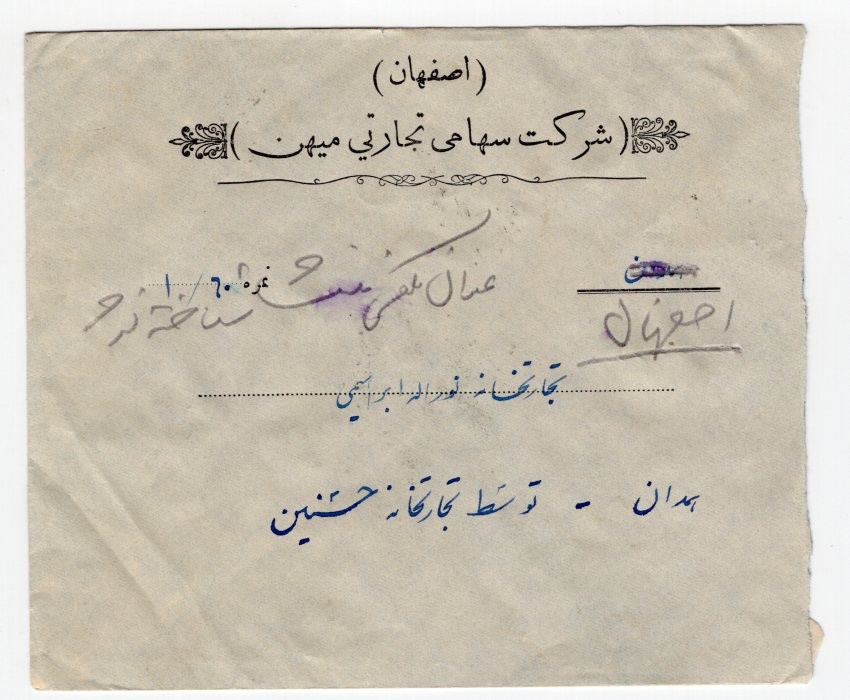 (اصفهان)
(شرکت سهامی تجارتي میهن)
نمره ۶۰/۱
اصفهان
شناخته نشد
تجارتخانه نوراله ابراهیمی
همدان - توسط تجارتخانه حسنین